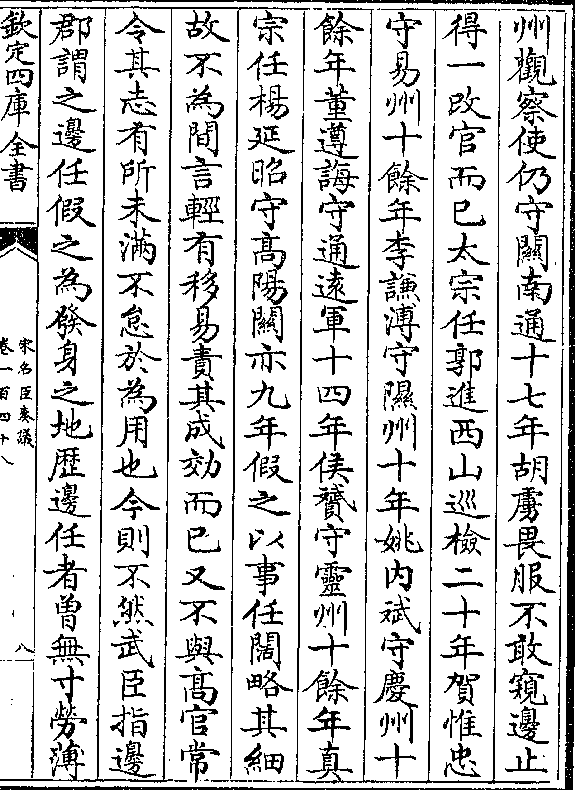 州觀察使仍守關南通十七年胡虜畏服不敢窺邊止
得一改官而已太宗任郭進西山巡檢二十年賀惟忠
守易州十餘年李謙溥守隰州十年姚内斌守慶州十
餘年董遵誨守通遠軍十四年侯贇守靈州十餘年真
宗任楊延昭守髙陽關亦九年假之以事任闊略其細
故不為間言輕有移易責其成効而已又不與髙官常
令其志有所未滿不怠於為用也今則不然武臣指邊
郡謂之邊任假之為發身之地歴邊任者曽無寸勞薄
欽定四庫全書
宋名臣奏議
卷一百四十八
八